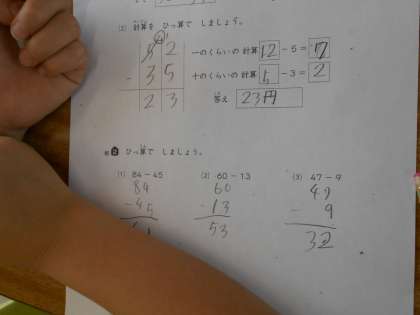 (2) 計算を ひっ算で しましょう。
5 2
一のくらいの 計算 12 − 5 = 7
- 3 5
十のくらいの 計算 5 − 3 = 2
2 3
答え 23円
2 ひっ算で しましょう。
(1) 84−45 (2) 60−13 (3) 47−9
84 60 47
-45 -13 - 9
53 32